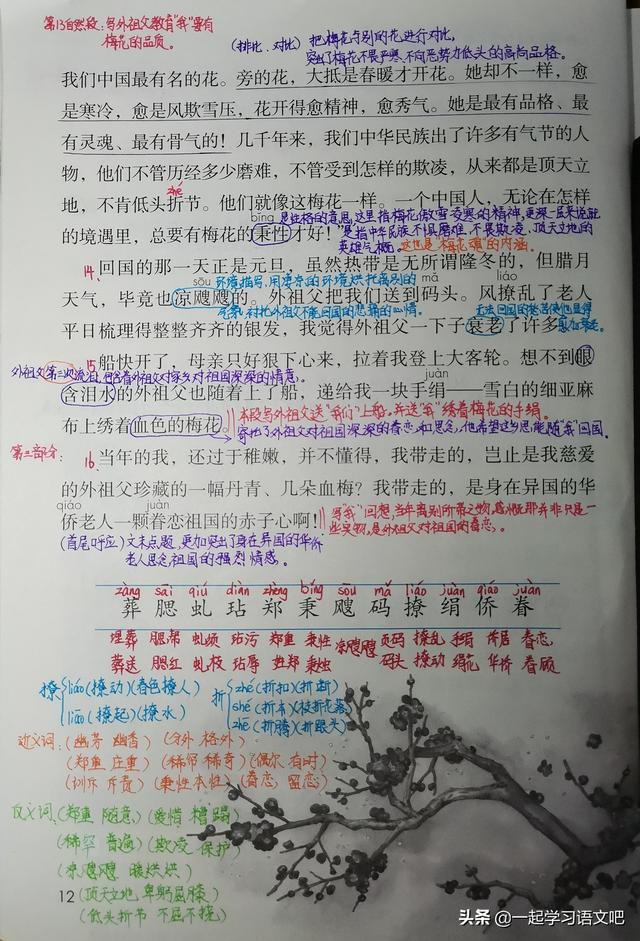 第13自然段:写外祖父教育"我"要有
梅花的品质。
(排比、对比) 把梅花与别的花进行对比,
突出了梅花不畏严寒、不向恶势力低头的高尚品格。
我们中国最有名的花。旁的花,大抵是春暖才开花。她却不一样,愈
是寒冷,愈是风欺雪压,花开得愈精神,愈秀气。她是最有品格、最
有灵魂、最有骨气的!几千年来,我们中华民族出了许多有气节的人
物,他们不管历经多少磨难,不管受到怎样的欺凌,从来都是顶天立
zhé
地,不肯低头折节。他们就像这梅花一样。一个中国人,无论在怎样
bǐng 是性格的意思,这里指梅花傲雪凌寒的精神,更深一层来说就
的境遇里,总要有梅花的秉性才好!
是指中华民族不惧磨难、不畏欺凌、顶天立地的
英雄气概。这也是"梅花魂"的内涵。
14.回国的那一天正是元旦,虽然热带是无所谓隆冬的,但腊月
sōu 环境描写,用凄凉的环境烘托离别的 mǎ liáo
天气,毕竟也凉飕飕的。外祖父把我们送到码头。风撩乱了老人
气氛,衬托外祖父不能回国的悲痛的心情。
平日梳理得整整齐齐的银发,我觉得外祖父一下子衰老了许多。
15 船快开了,母亲只好狠下心来,拉着我登上大客轮。想不到眼
外祖父第三次流泪,饱含着外祖父对家乡对祖国深深的情意。 juàn
含泪水的外祖父也随着上了船,递给我一块手绢——雪白的细亚麻
布上绣着血色的梅花。
本段写外祖父送"我们"上船,并送"我"绣着梅花的手绢。
寄托了外祖父对祖国深深的眷恋和思念,他希望这份思能随"我"回国。
第三部分:
16.当年的我,还过于稚嫩,并不懂得,我带走的,岂止是我慈爱
的外祖父珍藏的一幅丹青、几朵血梅?我带走的,是身在异国的华
qiáo juàn
侨老人一颗眷恋祖国的赤子心啊!
写"我"回想当年离别所带之物,感慨那并非只是一
些实物,是外祖父对祖国的眷恋。
(首尾呼应)文末点题,更加突出了身在异国的华侨
老人思念祖国的强烈情感。
zàng sāi qiú diàn zhèng bǐng sōu mǎ liáo juàn qiáo juàn
葬 腮 虬 玷 郑 秉 飕 码 撩 绢 侨 眷
埋葬 腮帮 虬须 玷污 郑重 秉性 凉飕飕 页码 撩乱 手绢 侨居 眷恋
葬送 腮红 虬枝 玷辱 姓郑 秉烛 码头 撩动 绢花 华侨 眷顾
撩 liáo(撩动)(春色撩人)
liāo(撩起)(撩水)
折 zhé(折扣)(折断)
shé(折本)(枝折花落)
zhē(折腾)(折跟头)
近义词:(幽芳 幽香)(分外 格外)
(郑重 庄重)(稀罕 稀奇)(偶尔 有时)
(训斥 斥责)(秉性 本性)(眷恋 留恋)
反义词:(郑重 随意)(爱惜 糟蹋)
(稀罕 普遍)(欺凌 保护)
(凉飕飕 暖烘烘)
(顶天立地 卑躬屈膝)
(低头折节 不屈不挠)
12
头条 @一起学习语文吧